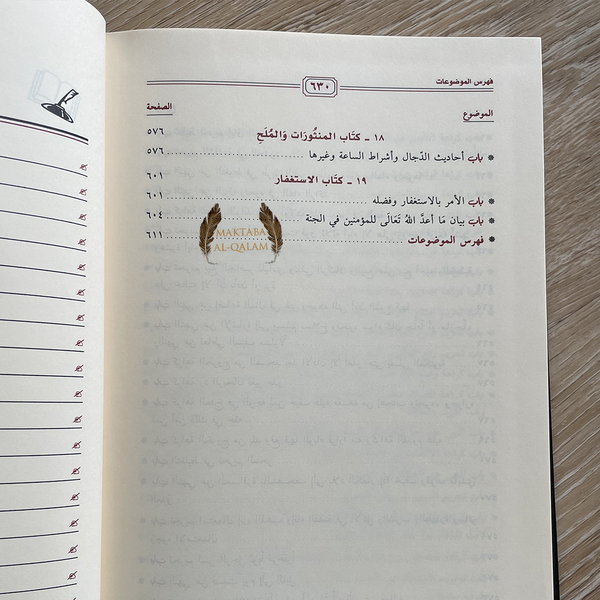 فهرس الموضوعات
٦٣٠
الموضوع
الصفحة
١٨ ـ كتَاب المنثُورَات وَالمُلَحِ
٥٧٦
* باب أحاديث الدّجال وأشراط الساعة وغيرها
٥٧٦
١٩ ـ كتَاب الاستغفَار
٦٠١
* باب الأمر بالاستغفار وفضله
٦٠١
* باب بيان مَا أعدَّ اللهُ تَعَالَى للمؤمنين في الجنة
٦٠٤
* فهرس الموضوعات
٦١١
MAKTABA
AL-QALAM